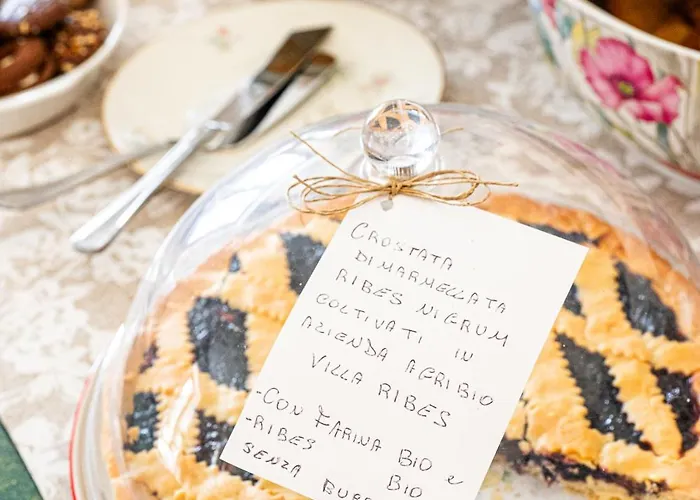 CROSTATA
DI MARMELLATA
RIBES NIGRUM
COLTIVATI IN
AZIENDA AGRIBIO
VILLA RIBES
-CON FARINA BIO e
-RIBES BIO
SENZA